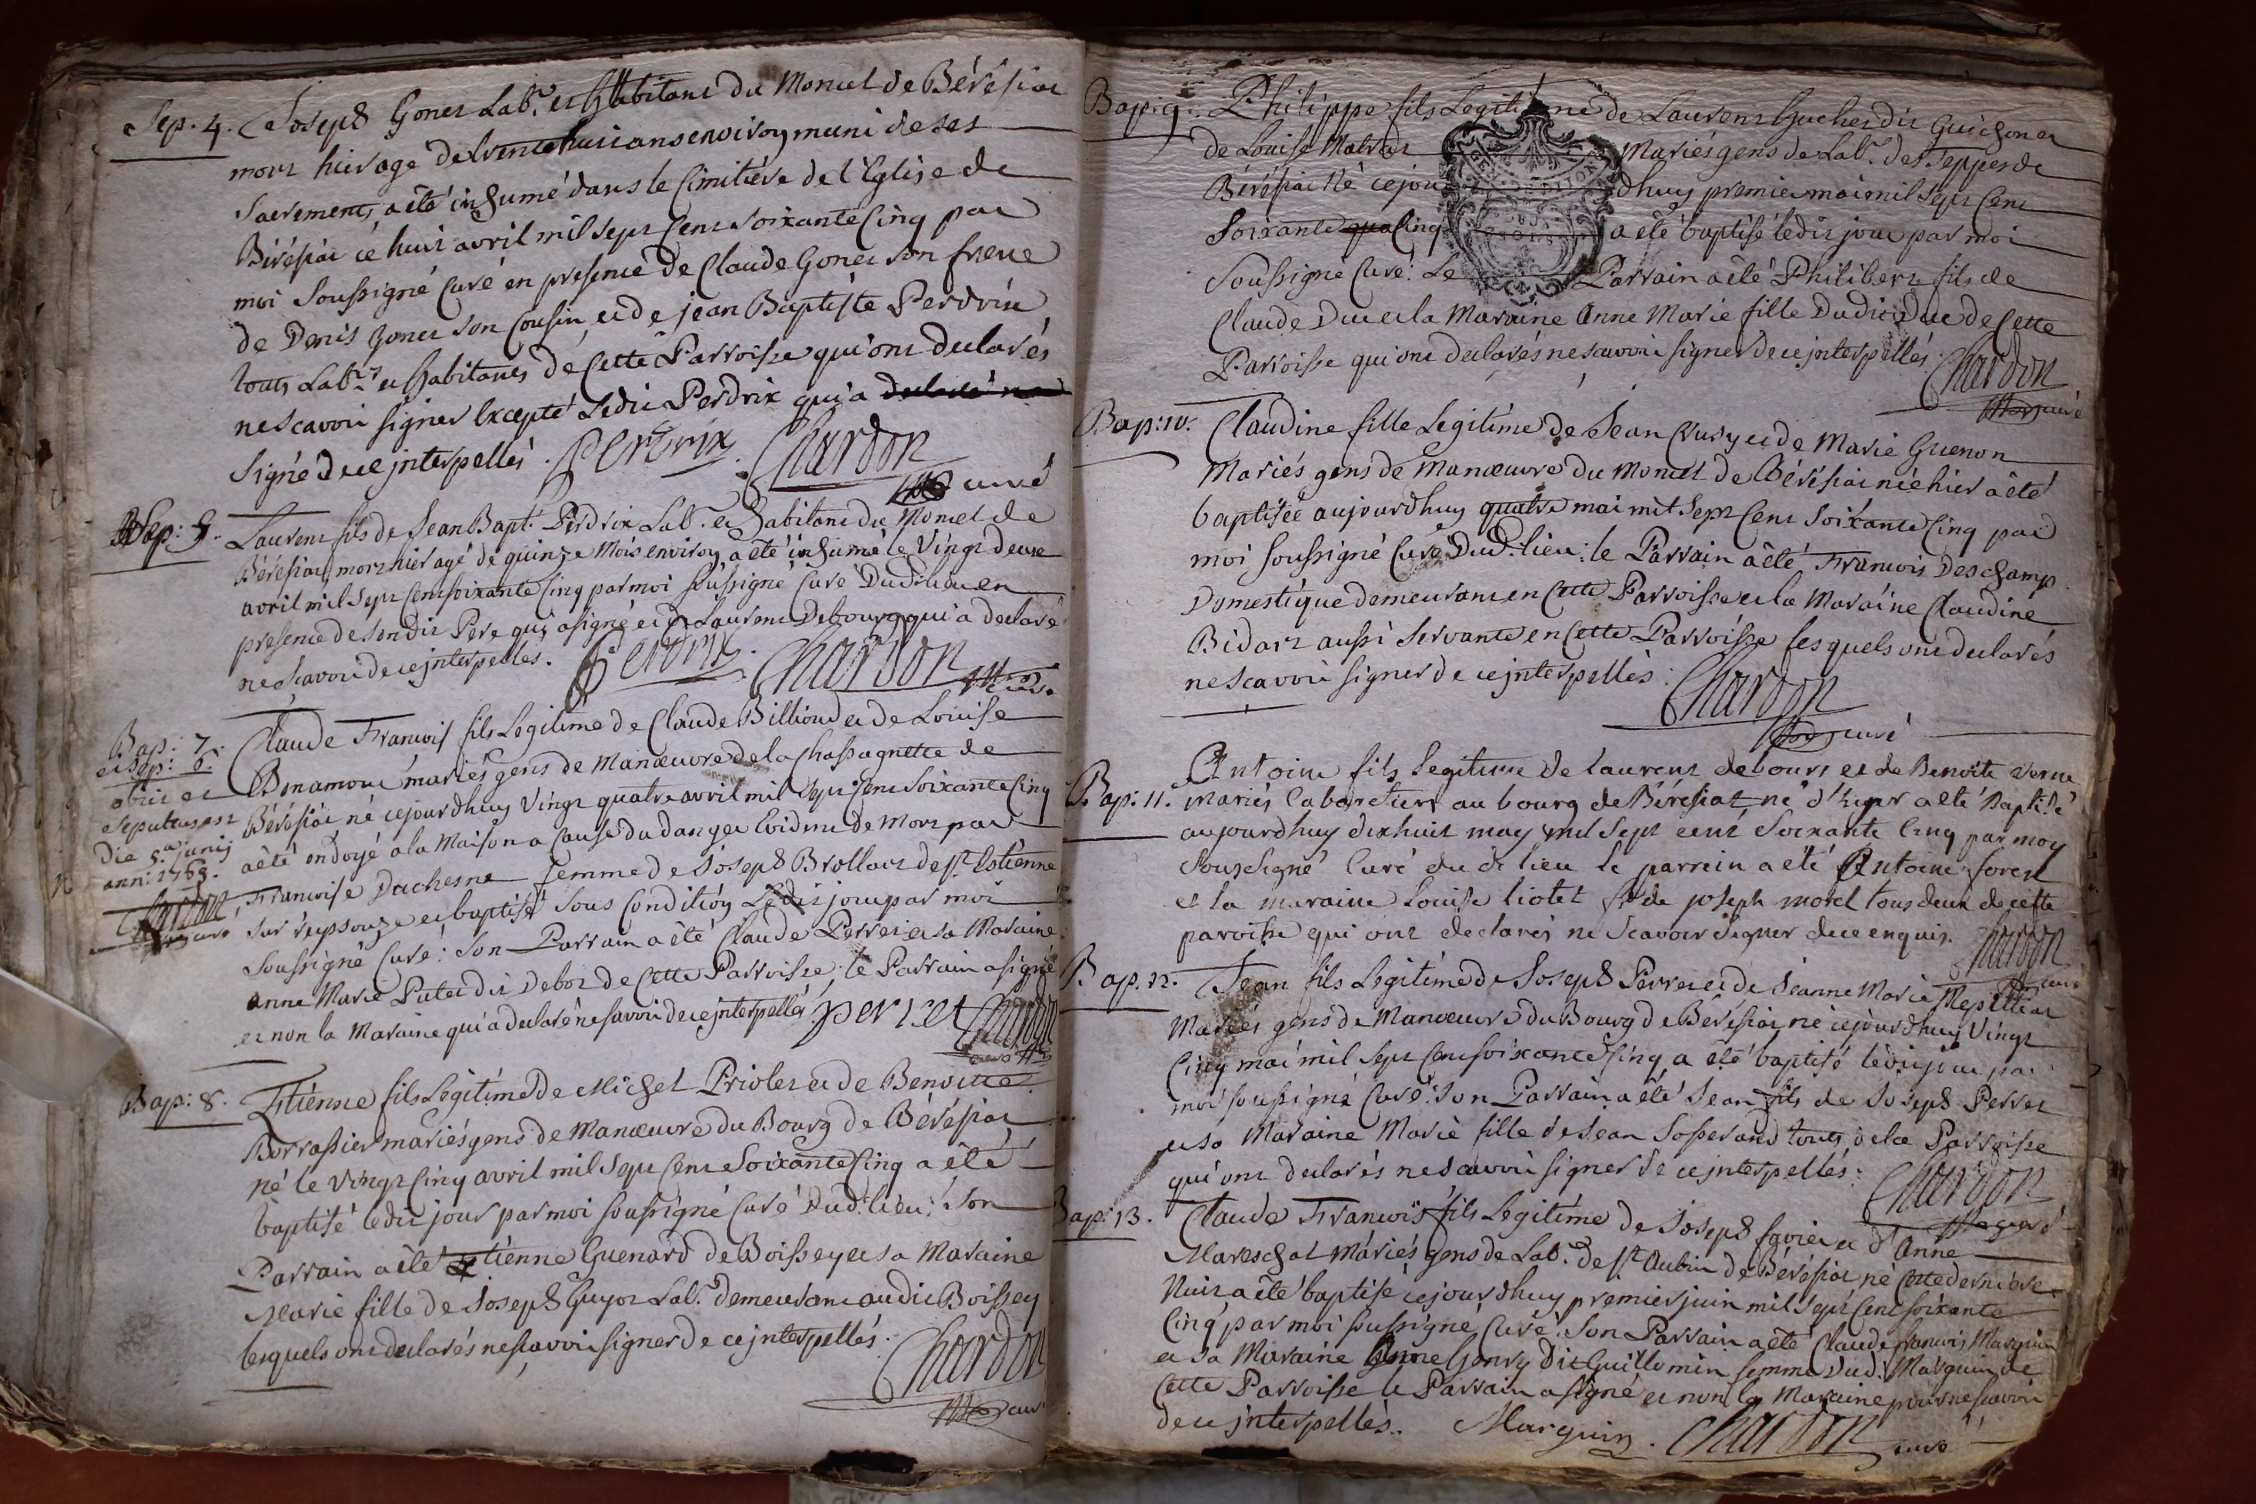 Sep. 4. Joseph Gonet Lab.r et habitant du Moncet de Béréziat
mort hier age de trente huit ans environ muni de ses
Sacrements, a été inhumé dans le Cimitière de l'Eglise de
Béréziat ce huit avril mil sept cent soixante Cinq par
moi soussigné Curé en presence de Claude Gonet son frere
de Denis Gonet son Cousin, et de jean Baptiste Perdrix
touts Lab.rs et habitants de Cette Parroisse qui ont declarés
ne scavoir signer Excepté Ledit Perdrix qui a declaré ne
signé de ce jnterpellés. Perdrix. Chardon
curé
Sep: 5. Laurent fils de Jean Bapt. Perdrix Lab.r et habitant du Moncet de
Béréziat, mort hier agé de quinze Mois environ a été inhumé le Vingt deux
avril mil Sept Cent soixante Cinq par moi soussigné Curé Dud. lieu en
presence de sondit Pere qui a signé et de Laurent Debourg qui a declaré
ne scavoir de ce jnterpellés. Perdrix. Chardon
curé
Bap: 7. Claude Francois fils Legitime de Claude Billioud et de Louise
et Sep: 6. Bonamour mariés gens de Manœuvre de la Chassagnette de
obiit et
sepultus est Béréziat né cejourdhuy Vingt quatre avril mil Sept Cent Soixante Cinq
die 5.a junij
ann: 1765. a été ondoyé a la Maison a Cause du danger Evident de Mort par
Chardon Francoise Duchesne femme de Joseph Brollard de St. Estienne
curé sur reyssouze et baptisé sous Condition Ledit jour par moi
soussigné Curé: son Parrain a été Claude Perret et sa Maraine
anne Marie Putet dit Debot de Cette Parroisse; le Parrain a signé
et non la Maraine qui a declaré ne savoir de ce jnterpellés perret Chardon
curé
Bap: 8. Etienne fils Legitime de Michel Priolet et de Benoitte
Borrassier mariés gens de Manœuvre du Bourg de Béréziat
né le Vingt Cinq avril mil Sept Cent Soixante Cinq a été
baptisé ledit jour par moi soussigné Curé Dud. lieu: son
Parrain a été Etienne Guenard de Boissey et sa Maraine
Marie fille de Joseph Guyot Lab.r demeurant audit Boissey
lesquels ont declarés ne scavoir signer de ce jnterpellés. Chardon
curé
Bap: 9. Philippe fils Legitime de Laurent Guches dit Guichon et
de Louise Matras Mariés gens de Lab.r des Teppes de
Béréziat Né ce jourdhuy premier mai mil Sept Cent
Soixante qua Cinq a été baptisé ledit jour par moi
Soussigné Curé: Le Parrain a été Philibert fils de
Claude Duc et la Maraine Anne Marie fille Dudit Duc de Cette
Parroisse qui ont declarés ne scavoir signer de ce jnterpellés. Chardon
curé
Bap: 10. Claudine fille Legitime de Jean Crusy et de Marie Guenon
Mariés gens de Manœuvre du Moncet de Béréziat née hier a été
baptisée aujourdhuy quatre mai mil Sept Cent Soixante Cinq par
moi soussigné Curé Dud. lieu: le Parrain a été Francois Deschamp
Domestique demeurant en Cette Parroisse et la Maraine Claudine
Bidart aussi Servante en Cette Parroisse lesquels ont declarés
ne Scavoir signer de ce jnterpellés: Chardon
curé
Antoine fils legitime de laurent debourg et de Benoite verne
Bap: 11. mariés Cabaretiers au bourg de Béréziat né d'hyer a été Baptisé
aujourdhuy dixhuit may mil Sept cent Soixante Cinq par moy
Soussigné Curé du d. lieu le parrein a été Antoine forest
et la maraine Louise liotet f. de joseph morel tous deux de cette
paroisse qui ont declarés ne Scavoir Signer de ce enquis. Chardon
curé
Bap. 12. Jean fils Legitime de Joseph Perret et de Jeanne Marie Mepilliat
Mariés gens de Manœuvre du Bourg de Béréziat né cejourdhuy Vingt
Cinq mai mil Sept Cent soixante Cinq, a été baptisé ledit jour par
moi soussigné Curé: son Parrain a été Jean fils de Joseph Perret
et sa Maraine Marie fille de Jean Josserand touts de la Parroisse
qui ont declarés ne scavoir signer de ce jnterpellés: Chardon
curé
Bap: 13. Claude Francois fils Legitime de Joseph favier et d'Anne
Mareschal Mariés gens de Lab.r de St. Aubin de Béréziat né Cette derniere
Nuit a été baptisé cejourdhuy premier juin mil Sept Cent soixante
Cinq par moi soussigné Curé. Son Parrain a été Claude francois Marguin
et sa Maraine Anne Genvy Dit Guillomin femme Dud. Marguin de
Cette Parroisse le Parrain a signé et non la Maraine pour ne scavoir
de ce jnterpellés. Marguin. Chardon curé